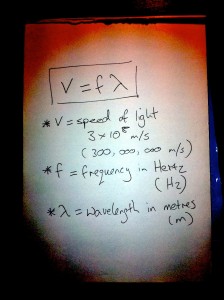 V = f λ
* V = speed of light
3 × 10⁸ m/s
(300,000,000 m/s)
* f = frequency in Hertz
(Hz)
* λ = wavelength in metres
(m)